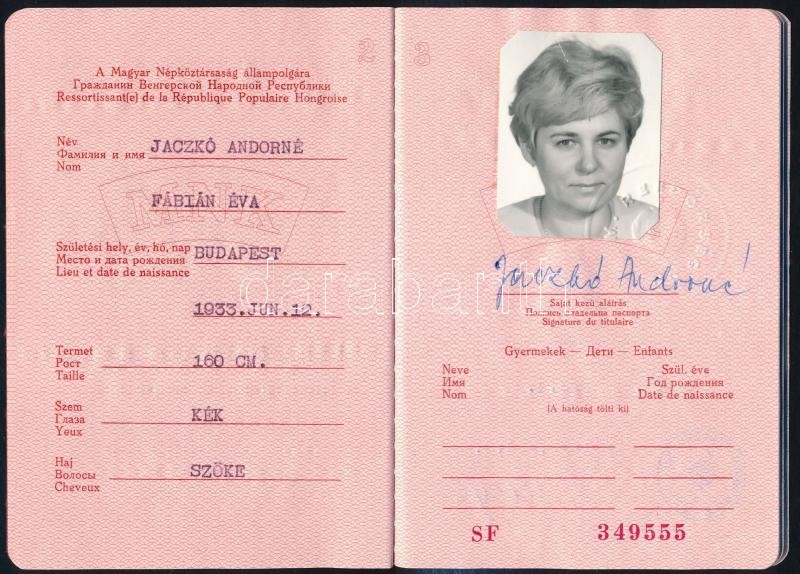 2
A Magyar Népköztársaság állampolgára
Гражданин Венгерской Народной Республики
Ressortissant(e) de la République Populaire Hongroise
Név
Фамилия и имя JACZKÓ ANDORNÉ
Nom
MNK
FÁBIÁN ÉVA
Születési hely, év, hó, nap
Место и дата рождения BUDAPEST
Lieu et date de naissance
1933.JUN.12.
Termet
Рост 160 CM.
Taille
Szem
Глаза KÉK
Yeux
Haj
Волосы SZÖKE
Cheveux
3
Jaczkó Andorné
Saját kezű aláírás
Подпись владельца паспорта
Signature du titulaire
Gyermekek — Дети — Enfants
Neve Szül. éve
Имя Год рождения
Nom Date de naissance
(A hatóság tölti ki)
SF 349555
darabanth